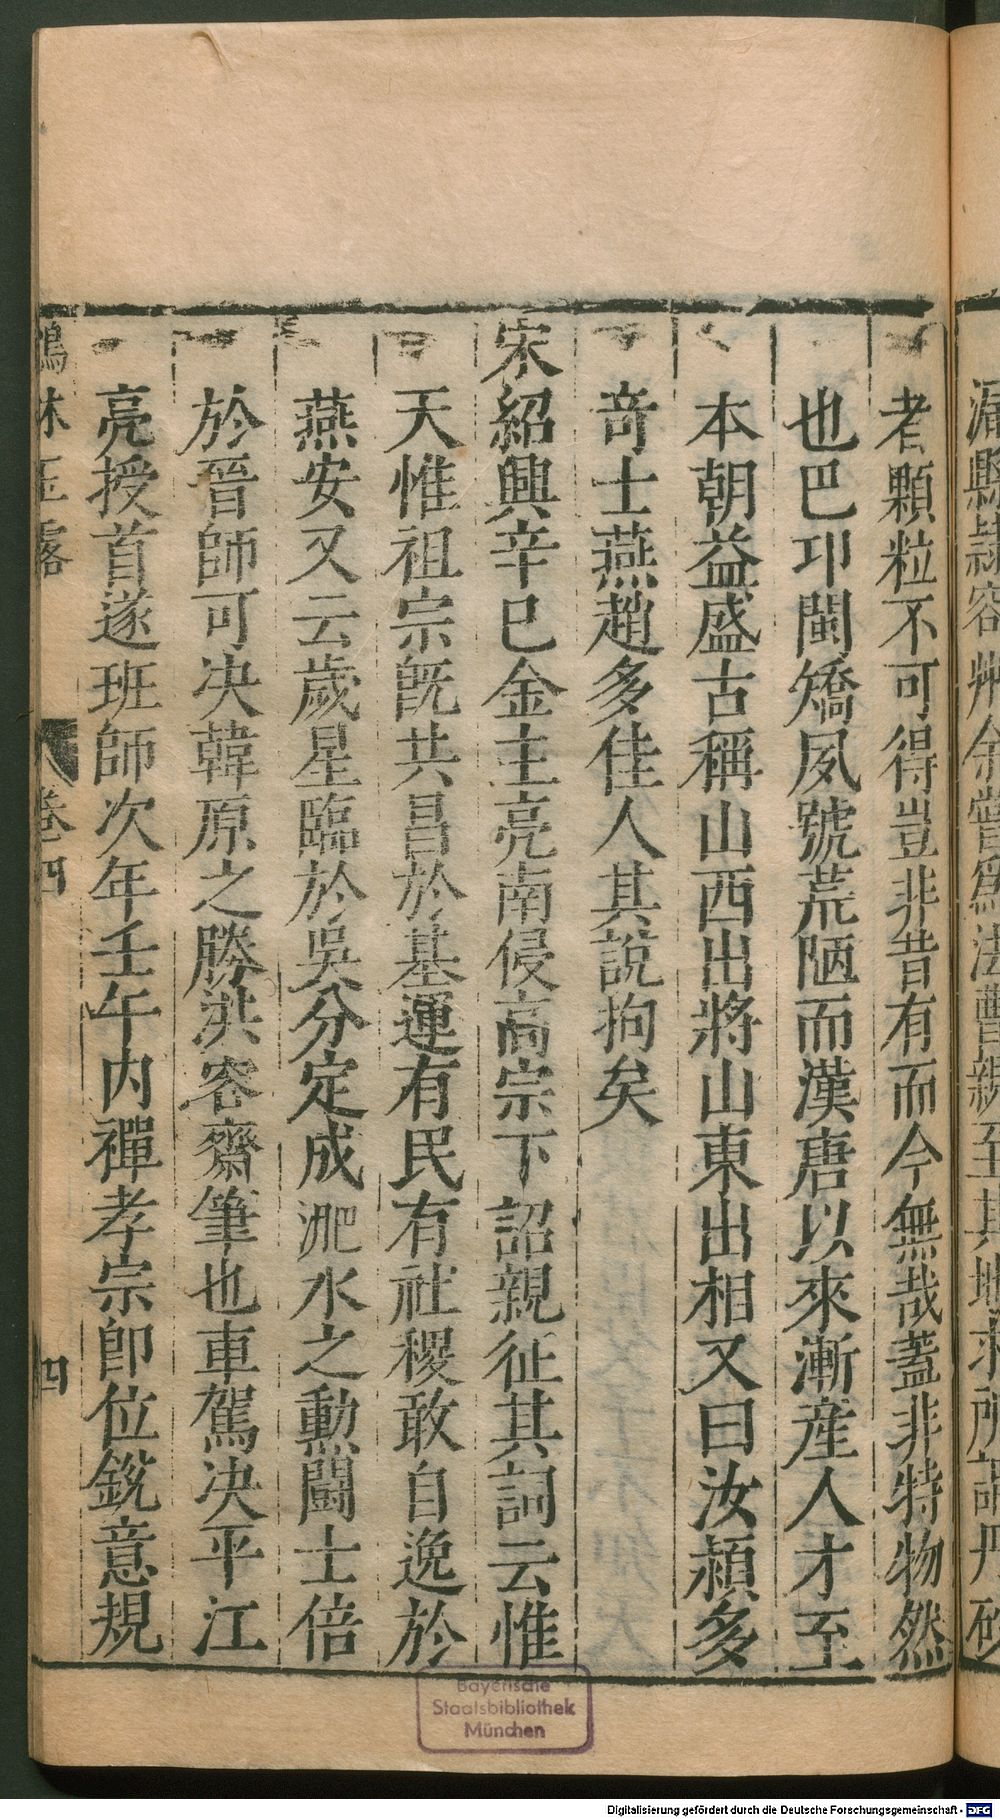 漏縣隸容州余嘗爲法曹親至其地求所謂丹砂
者顆粒不可得豈非昔有而今無哉蓋非特物然
也巴卭閩矯夙號荒陋而漢唐以來漸産人才至
本朝益盛古稱山西出將山東出相又曰汝潁多
竒士燕趙多佳人其說拘矣
宋紹興辛巳金主亮南侵高宗下詔親征其詞云惟
天惟祖宗旣共昌於基運有民有社稷敢自逸於
燕安又云歲星臨於吳分定成淝水之勳鬬士倍
於晉師可决韓原之勝洪容齋筆也車駕决平江
亮授首遂班師次年壬午内禪孝宗卽位銳意規
鶴林玉露 卷四 四
Bayerische
Staatsbibliothek
München
Digitalisierung gefördert durch die Deutsche Forschungsgemeinschaft - DFG